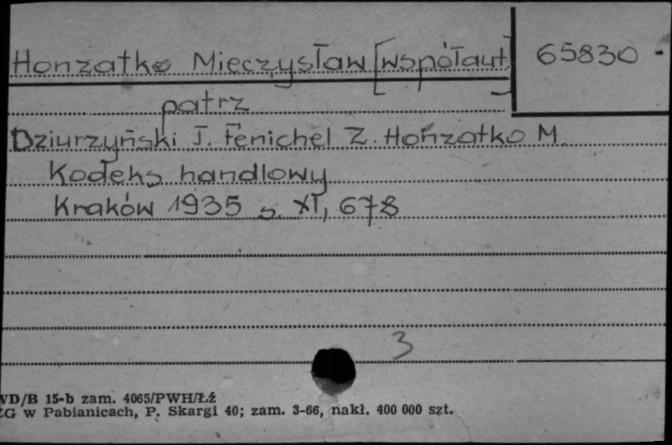 Honzatko Mieczysław [współaut.]
65830
patrz
Dziurzyński T. Fenichel Z. Honzatko M.
Kodeks handlowy
Kraków 1935 s. XI, 678
3
WD/B 15-b zam. 4065/PWH/Łż
ZG w Pabianicach, P. Skargi 40; zam. 3-66, nakł. 400 000 szt.